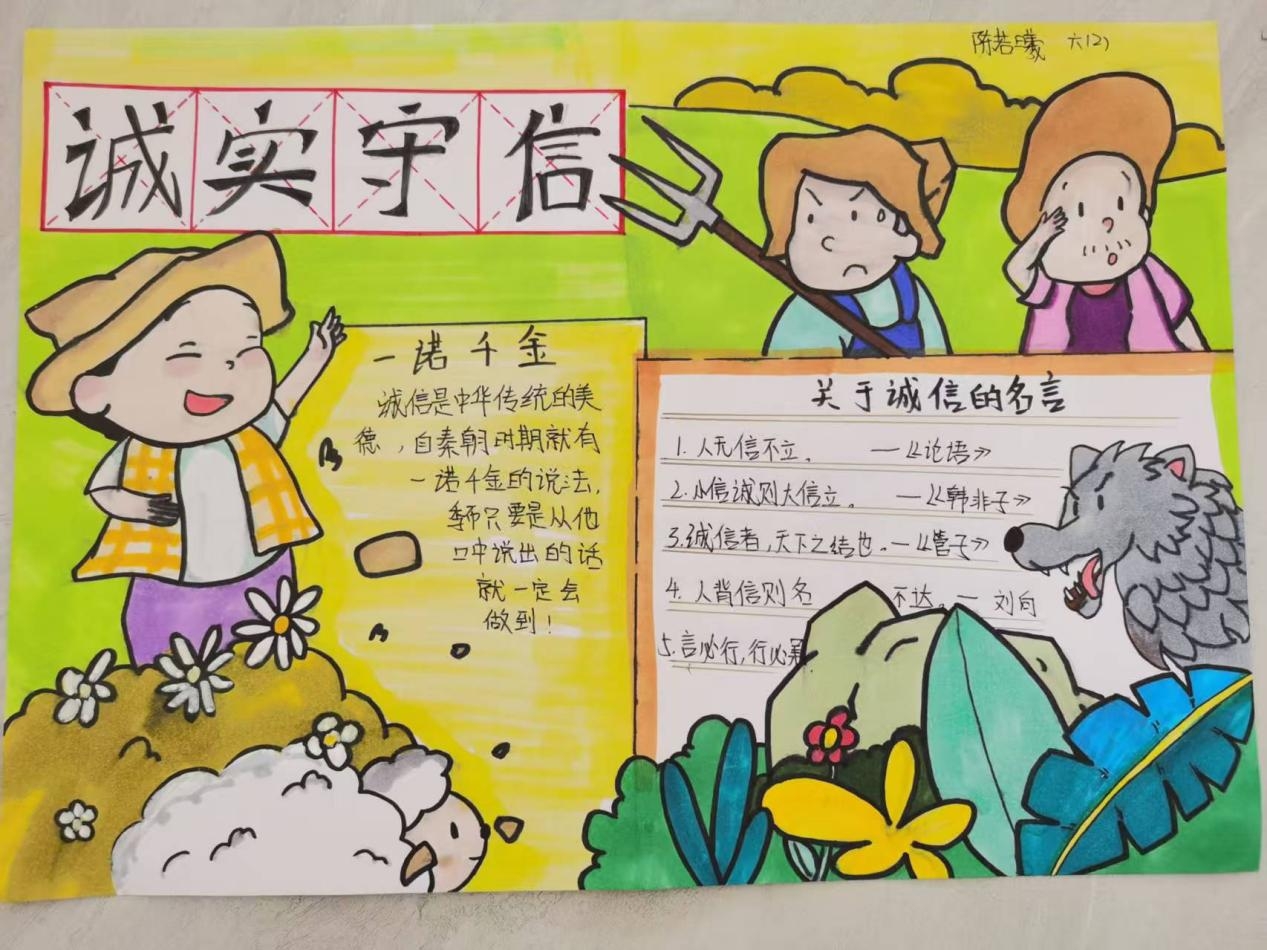 诚实守信
陈若曦 六(2)
一诺千金
诚信是中华传统的美
德,自秦朝时期就有
一诺千金的说法,
季布只要是从他
口中说出的话
就一定会
做到!
关于诚信的名言
1.人无信不立。 —《论语》
2.小信诚则大信立。 —《韩非子》
3.诚信者,天下之结也。—《管子》
4.人背信则名 不达。— 刘向
5.言必行,行必果